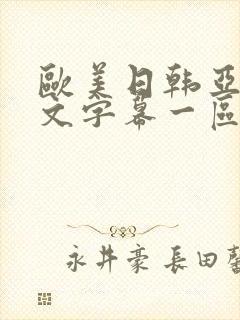 歐美日韩亞
文字幕一區
永井豪 長田馨